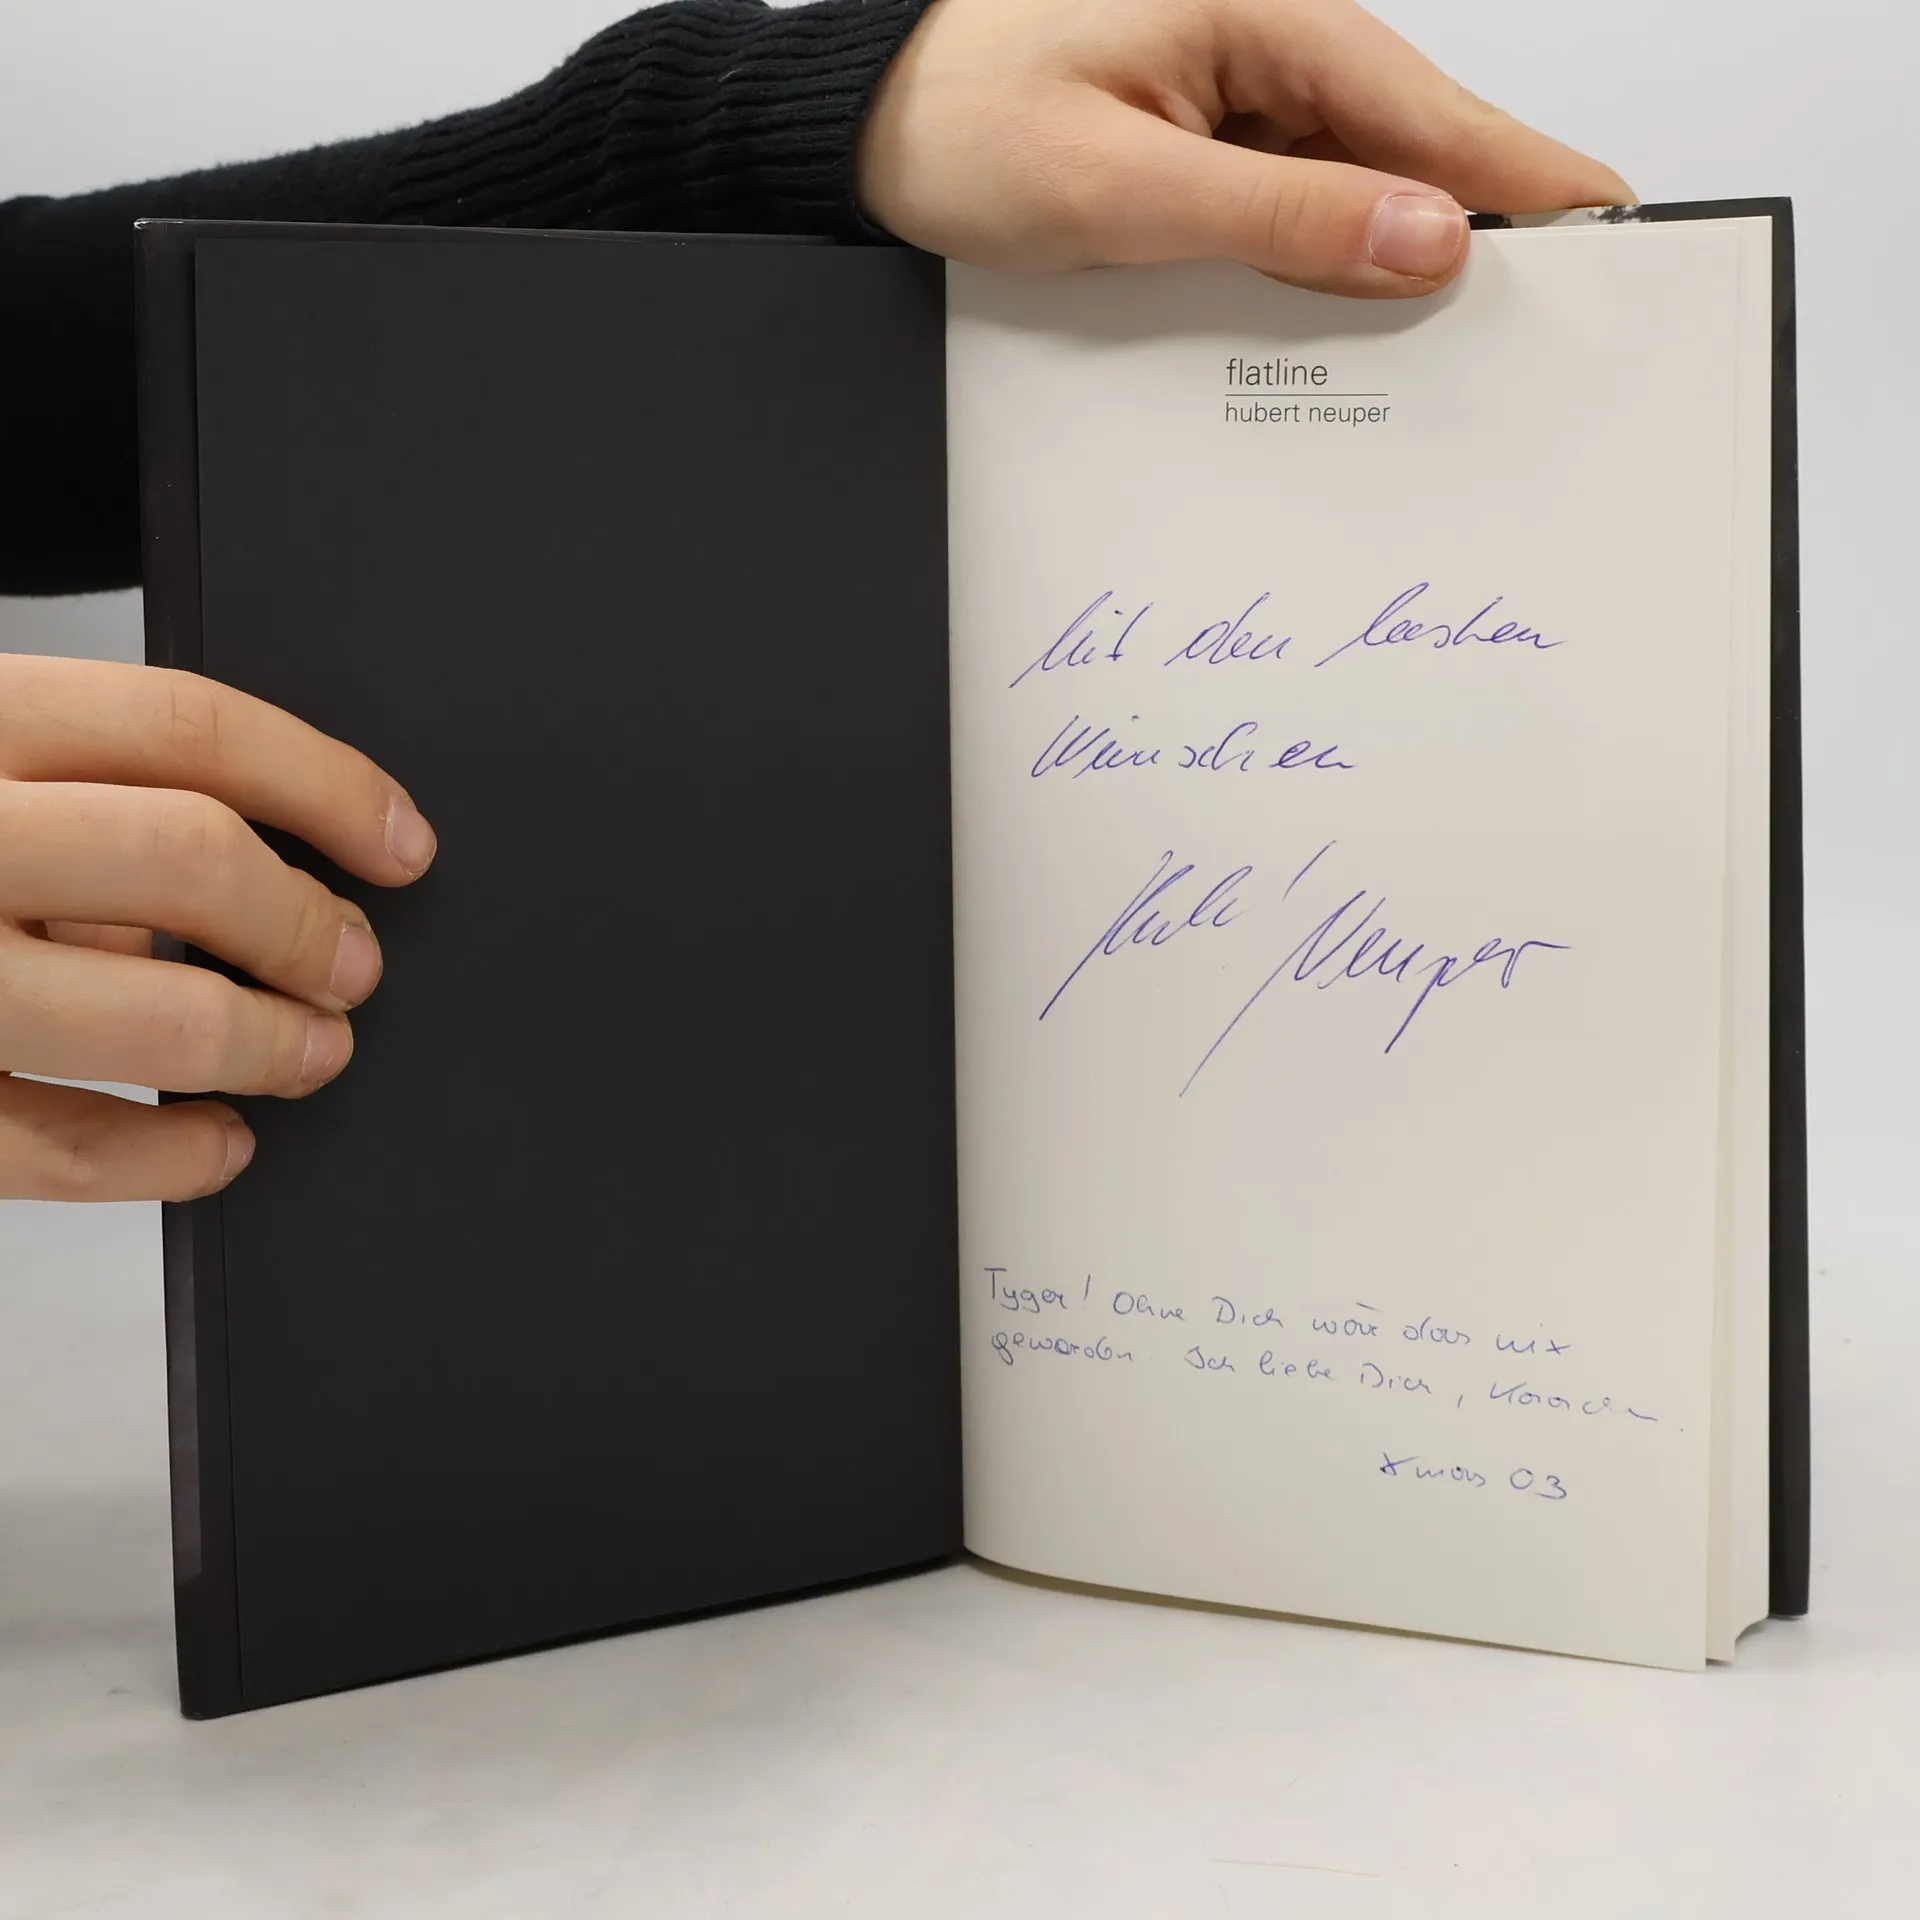 flatline
hubert neuper
Mit den besten
Wünschen
Hubert Neuper
Tyger! Ohne Dich wär das nix
geworden. Ich liebe Dich,
Xmas 03